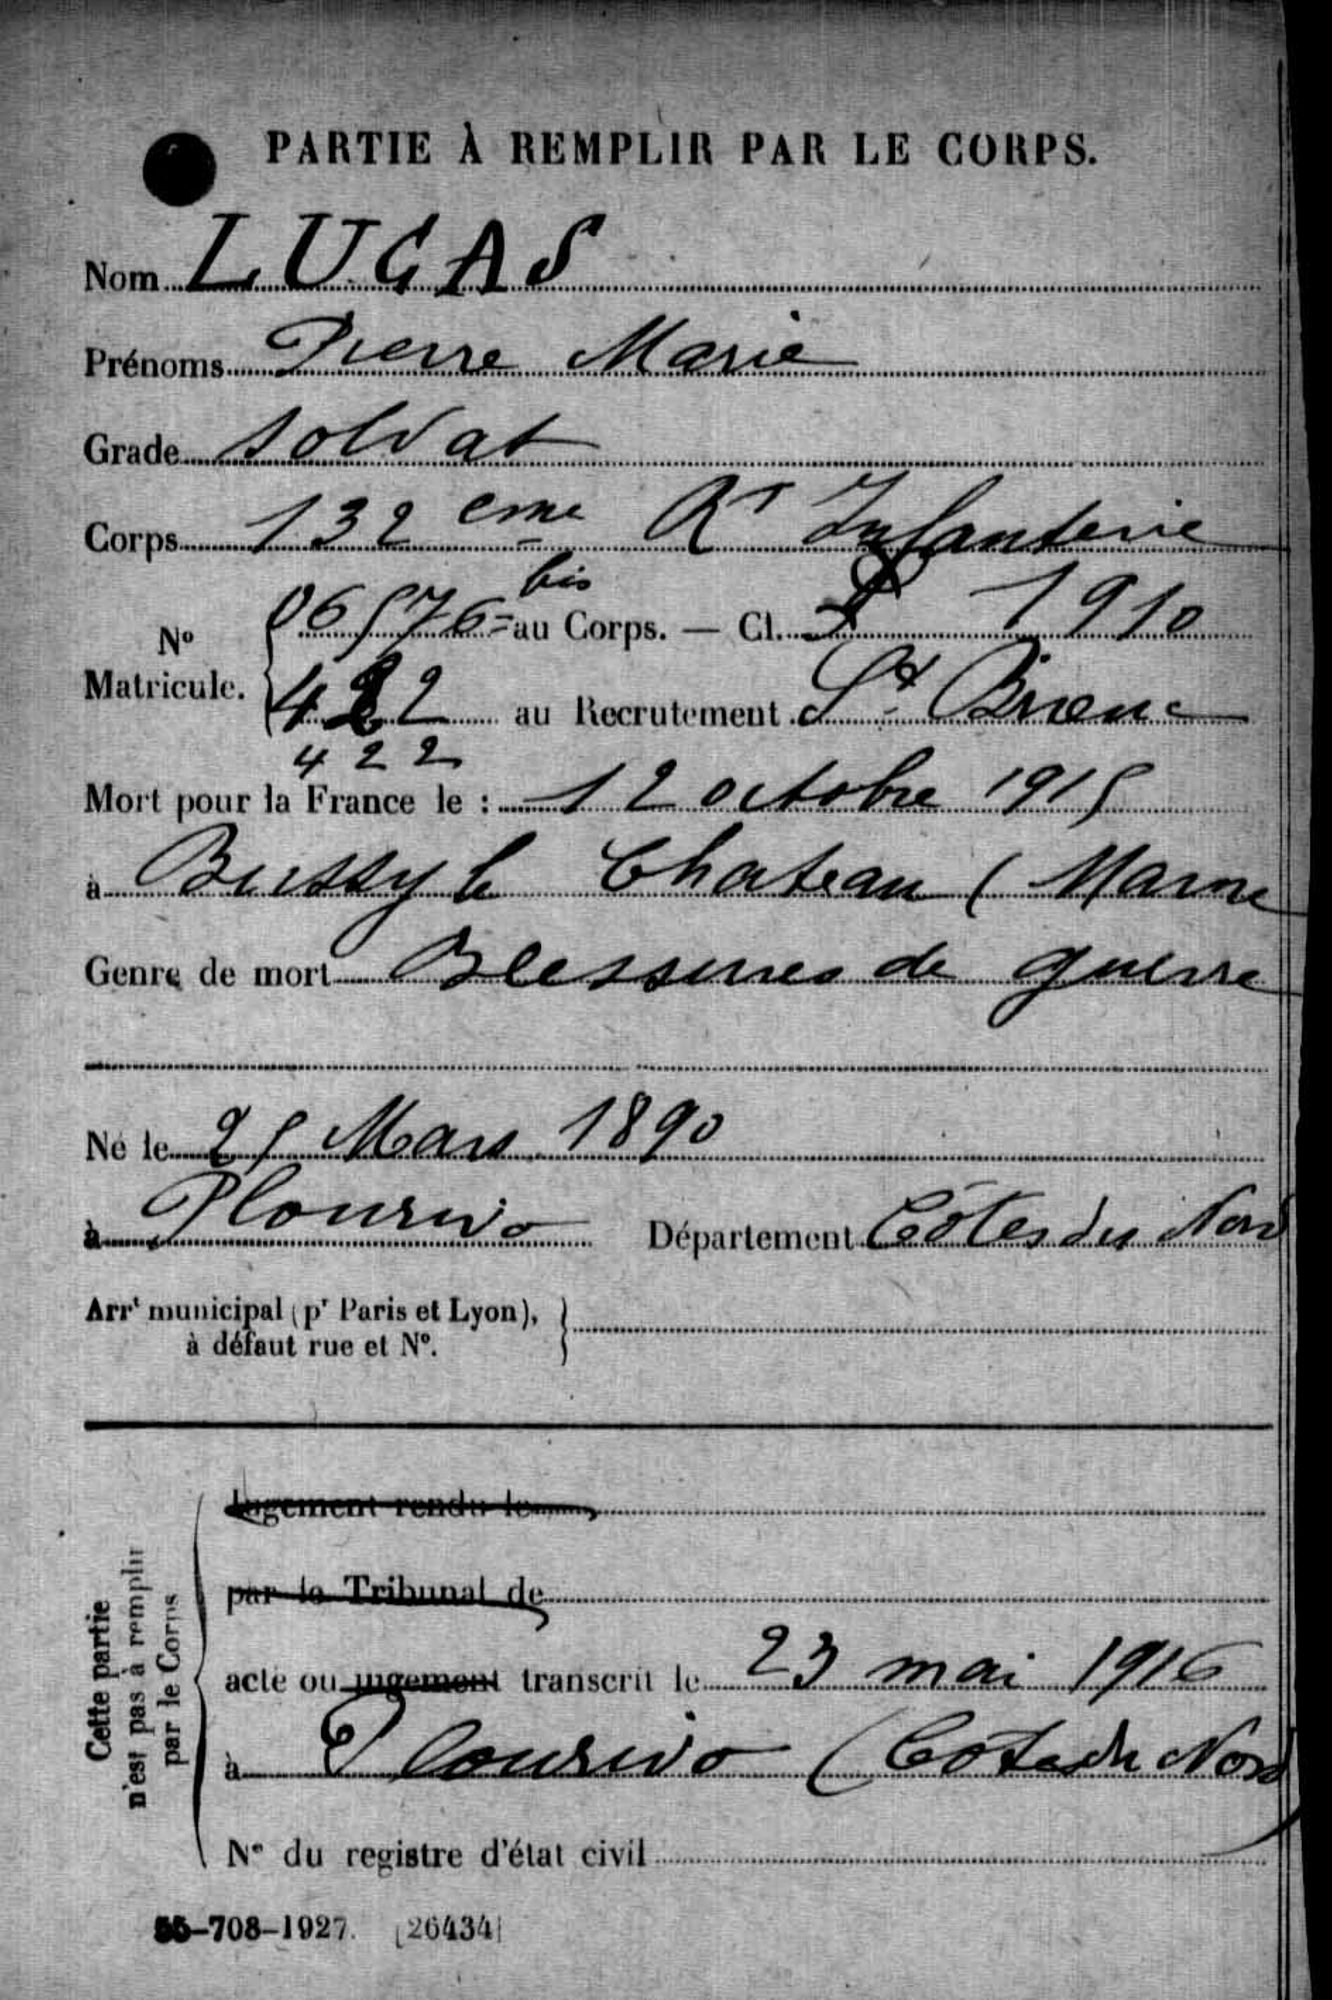 PARTIE À REMPLIR PAR LE CORPS.
Nom LUCAS
Prénoms Pierre Marie
Grade soldat
Corps 132 eme Rt Infanterie
bis
06576 = au Corps. — Cl. 1910
N°
Matricule.
422 au Recrutement St Brieuc
422
Mort pour la France le : 12 octobre 1915
à Bussy le Chateau (Marne
Genre de mort Blessures de guerre
Né le 25 Mars 1890
à Plourivo Département Côtes du Nord
Arrt municipal (pr Paris et Lyon),
à défaut rue et N°.
Cette partie
n'est pas à remplir
par le Corps
Jugement rendu le
par le Tribunal de
acte ou jugement transcrit le 23 mai 1916
à Plourivo (Cotes du Nord)
N° du registre d'état civil
55-708-1927. [26434]